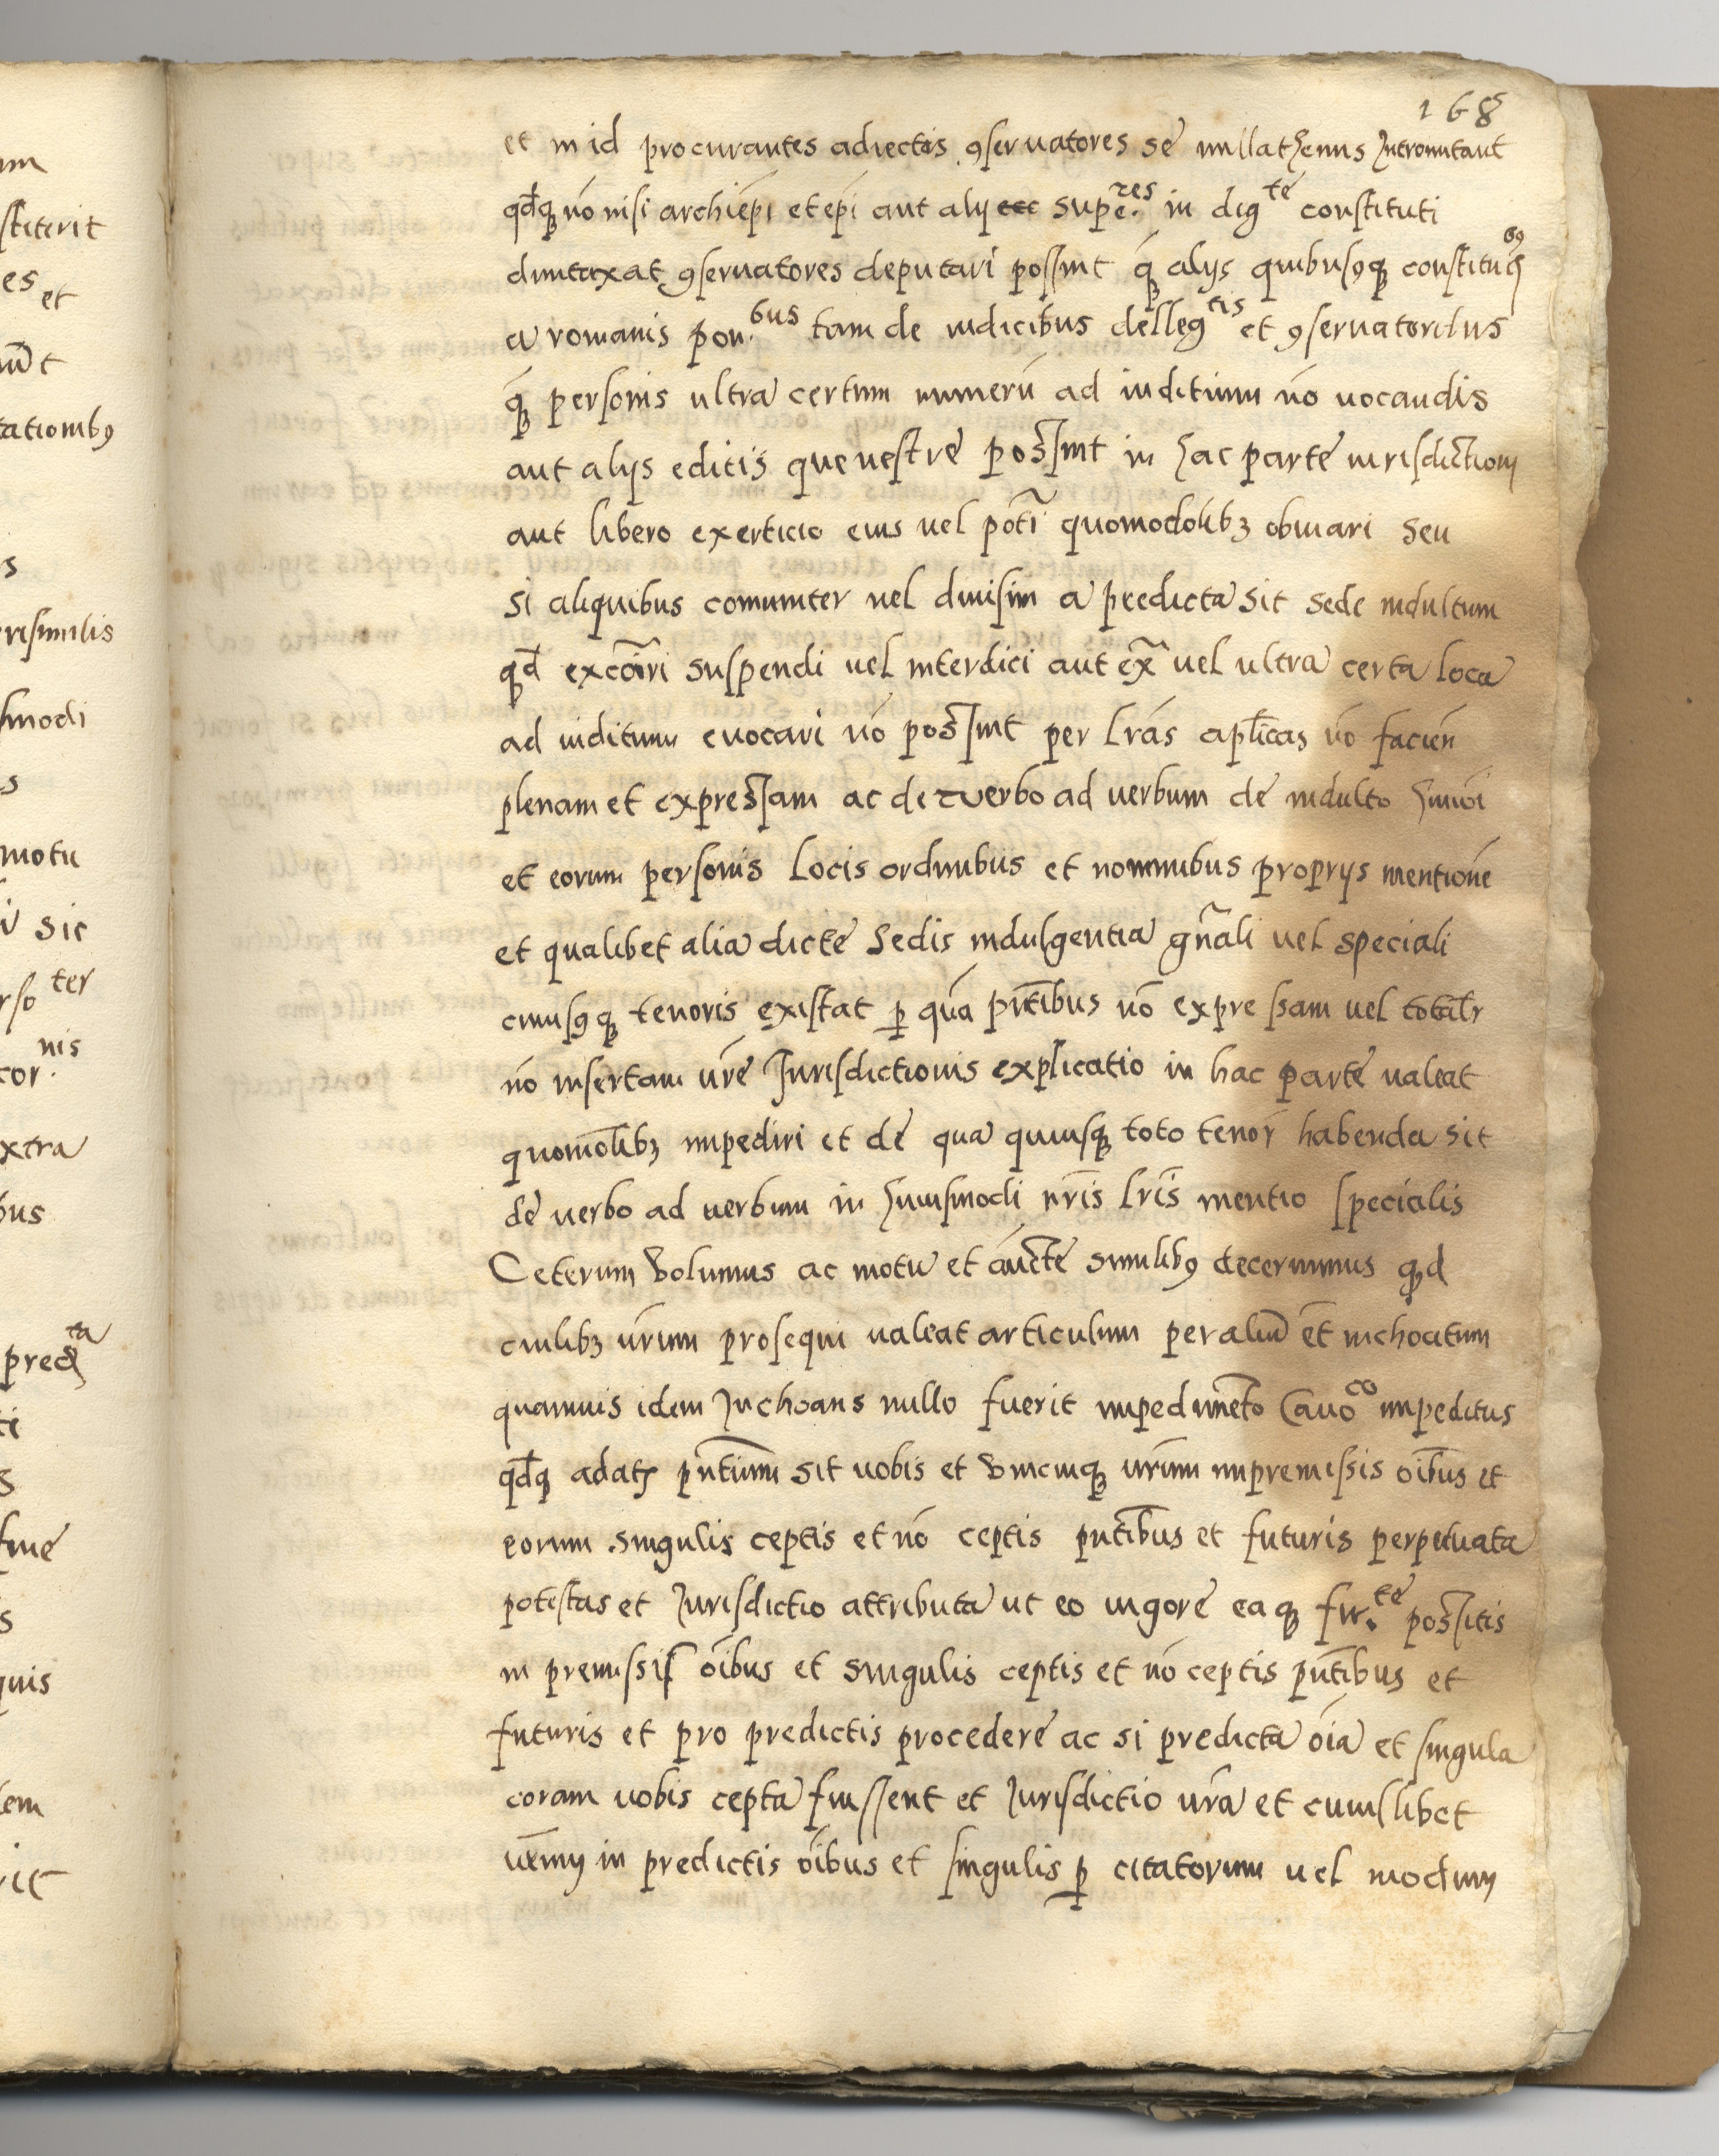 168
et in id procurantes adiectis ꝯservatores se nullathenus Intromittant
qđꝗ nō nisi archiēpi et ēpi aut alij supe.res in digte constituti
dumtaxat ꝯservatores deputari possint ꝗ alijs quibusꝯꝗ constitutiobꝯ
a romanis pon.bus tam de iudicibus dellegtis et ꝯservatoribus
ꝗ personis ultra certum numerū ad iuditium nō vocandis
aut alijs editis que vestre possint in hac parte iurisdictioni
aut libero exerticio eius vel potī quomodolibꝫ obviari seu
si aliquibus comuniter vel divisim a predicta sit sede indultum
qđ excōiri suspendi vel interdici aut ex̄ vel ultra certa loca
ad iuditium evocari nō possint per lrās aplīcas nō facien
plenam et expressam ac de verbo ad verbum de indulto hmōi
et eorum personis locis ordinibus et nominibus proprijs mentione
et qualibet alia dicte sedis indulgentia gñali vel speciali
cuiusꝯꝗ tenoris existat ꝑ quā pñtibus nō expressam vel totalr
nō insertam vrē Jurisdictionis explicatio in hac parte valeat
quomōlibꝫ impediri et de qua quiusꝗ toto tenor habenda sit
de verbo ad verbum in huiusmodi nrīs lrīs mentio specialis
Ceterum volumus ac motu et aucte similibꝯ decernimus qđ
cuilibꝫ vrūm prosequi valeat articulum per aliū ēt inchoatum
quamvis idem Inchoans nullo fuerit impedimēto Cavoco impeditus
qđꝗ adatꝭ pñtium sit vobis et vnicuiꝗ vrūm inpremissis oībus et
eorum singulis ceptis et nō ceptis pñtibus et futuris perpetuata
potestas et Jurisdictio attributa ut eo vigore eaꝗ fir.te possitis
in premissis oībus et singulis ceptis et nō ceptis pñtibus et
futuris et pro predictis procedere ac si predicta oīa et singula
coram vobis cepta fuissent et Jurisdictio vrā et cuiuslibet
in predictis oībus et singulis ꝑ citatorum vel modum